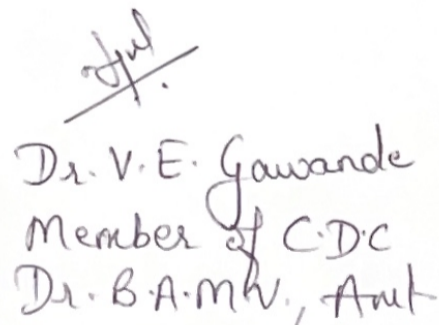 Dr. V. E. Gawande
Member of C.D.C
Dr. B.A.M.U.,